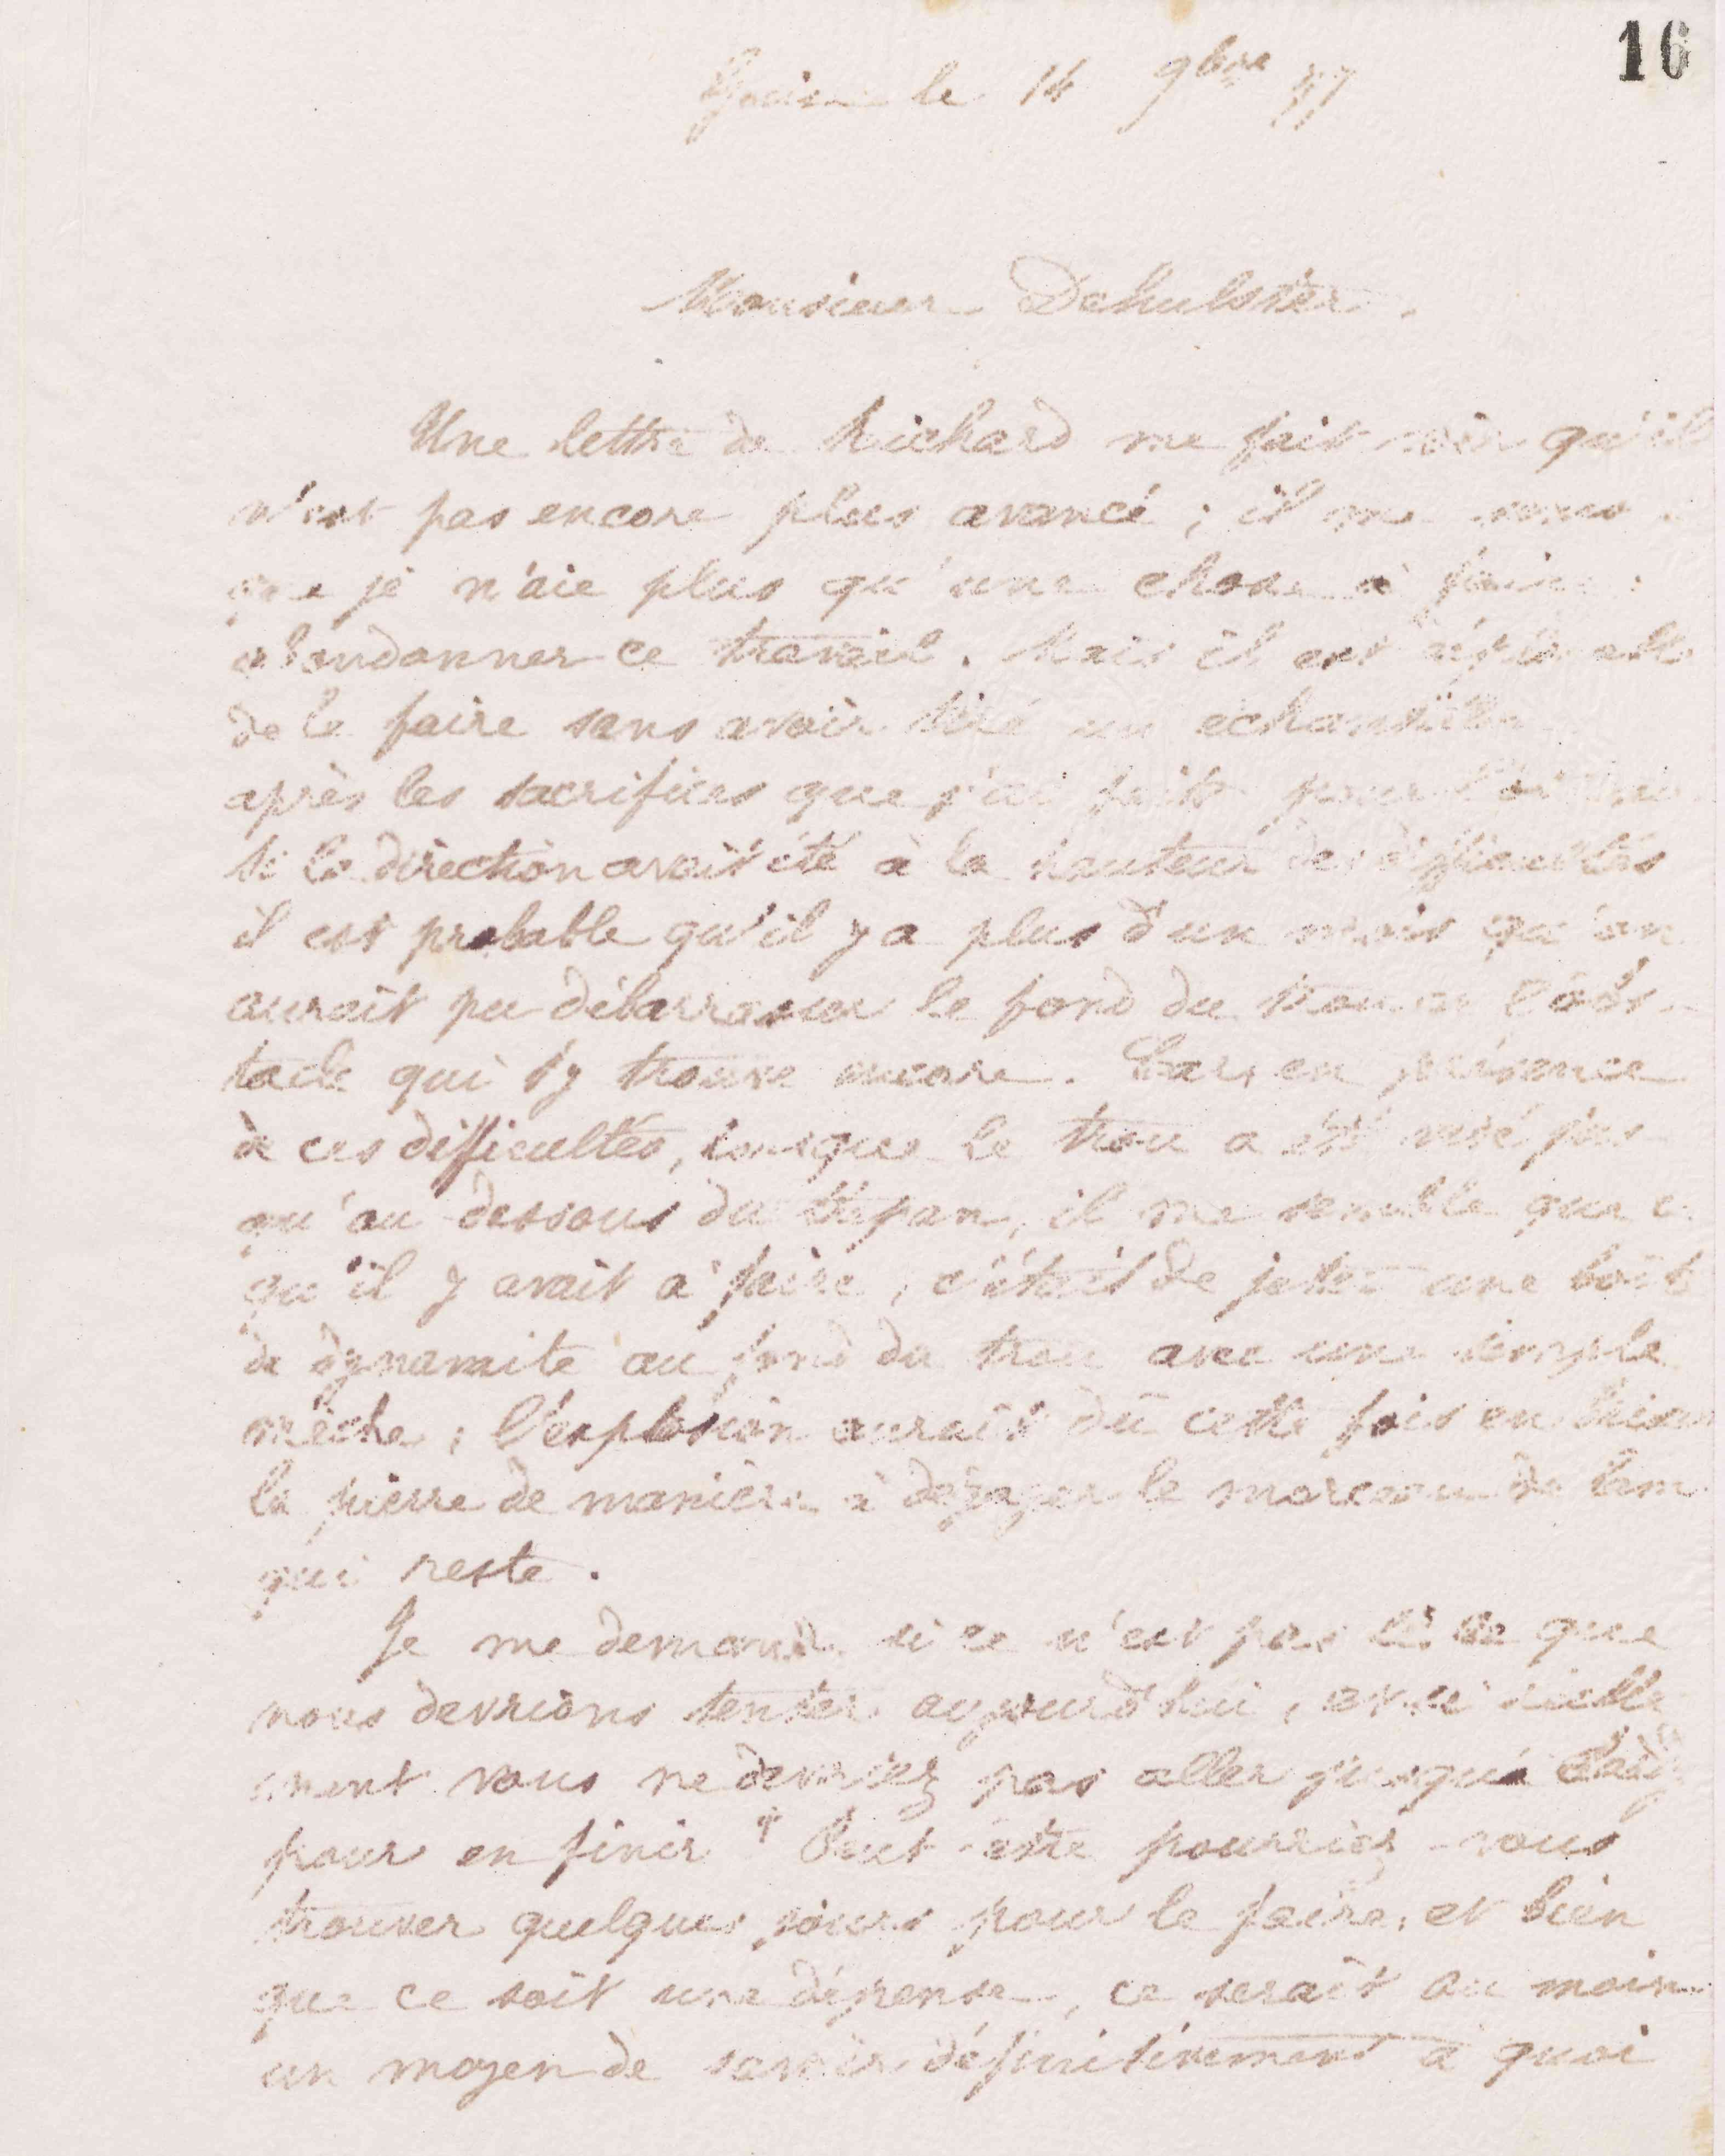 16
Guise le 14 9bre 77
Monsieur Dehulster.
Une lettre de Richard me fait voir qu'il
n'est pas encore plus avancé ; il me
que je n'aie plus qu'une chose à faire :
abandonner ce travail. Mais il est
de le faire sans avoir tiré un echantillon
après les sacrifices que j'ai faits pour
Si la direction avait été à la hauteur des difficultés
il est probable qu'il y a plus d'un mois qu'on
aurait pu débarrasser le fond du trou de l'obs-
tacle qui s'y trouve encore. Car, en présence
de ces difficultés, lorsque le trou a été visé jus-
qu'au dessous du trépan, il me semble que ce
qu'il y avait à faire, c'était de jeter une boîte
de dynamite au fond du trou avec une simple
mèche ; l'explosion aurait dû cette fois en
la pierre de manière à dégager le morceau de lame
qui reste.
Je me demande si ce n'est pas là ce que
nous devrions tenter aujourd'hui, et si réelle
ment vous ne devriez pas aller jusque là
pour en finir ? Peut-être pourriez-vous
trouver quelques jours pour le faire, et bien
que ce soit une dépense, ce serait au moins
un moyen de savoir définitivement à quoi